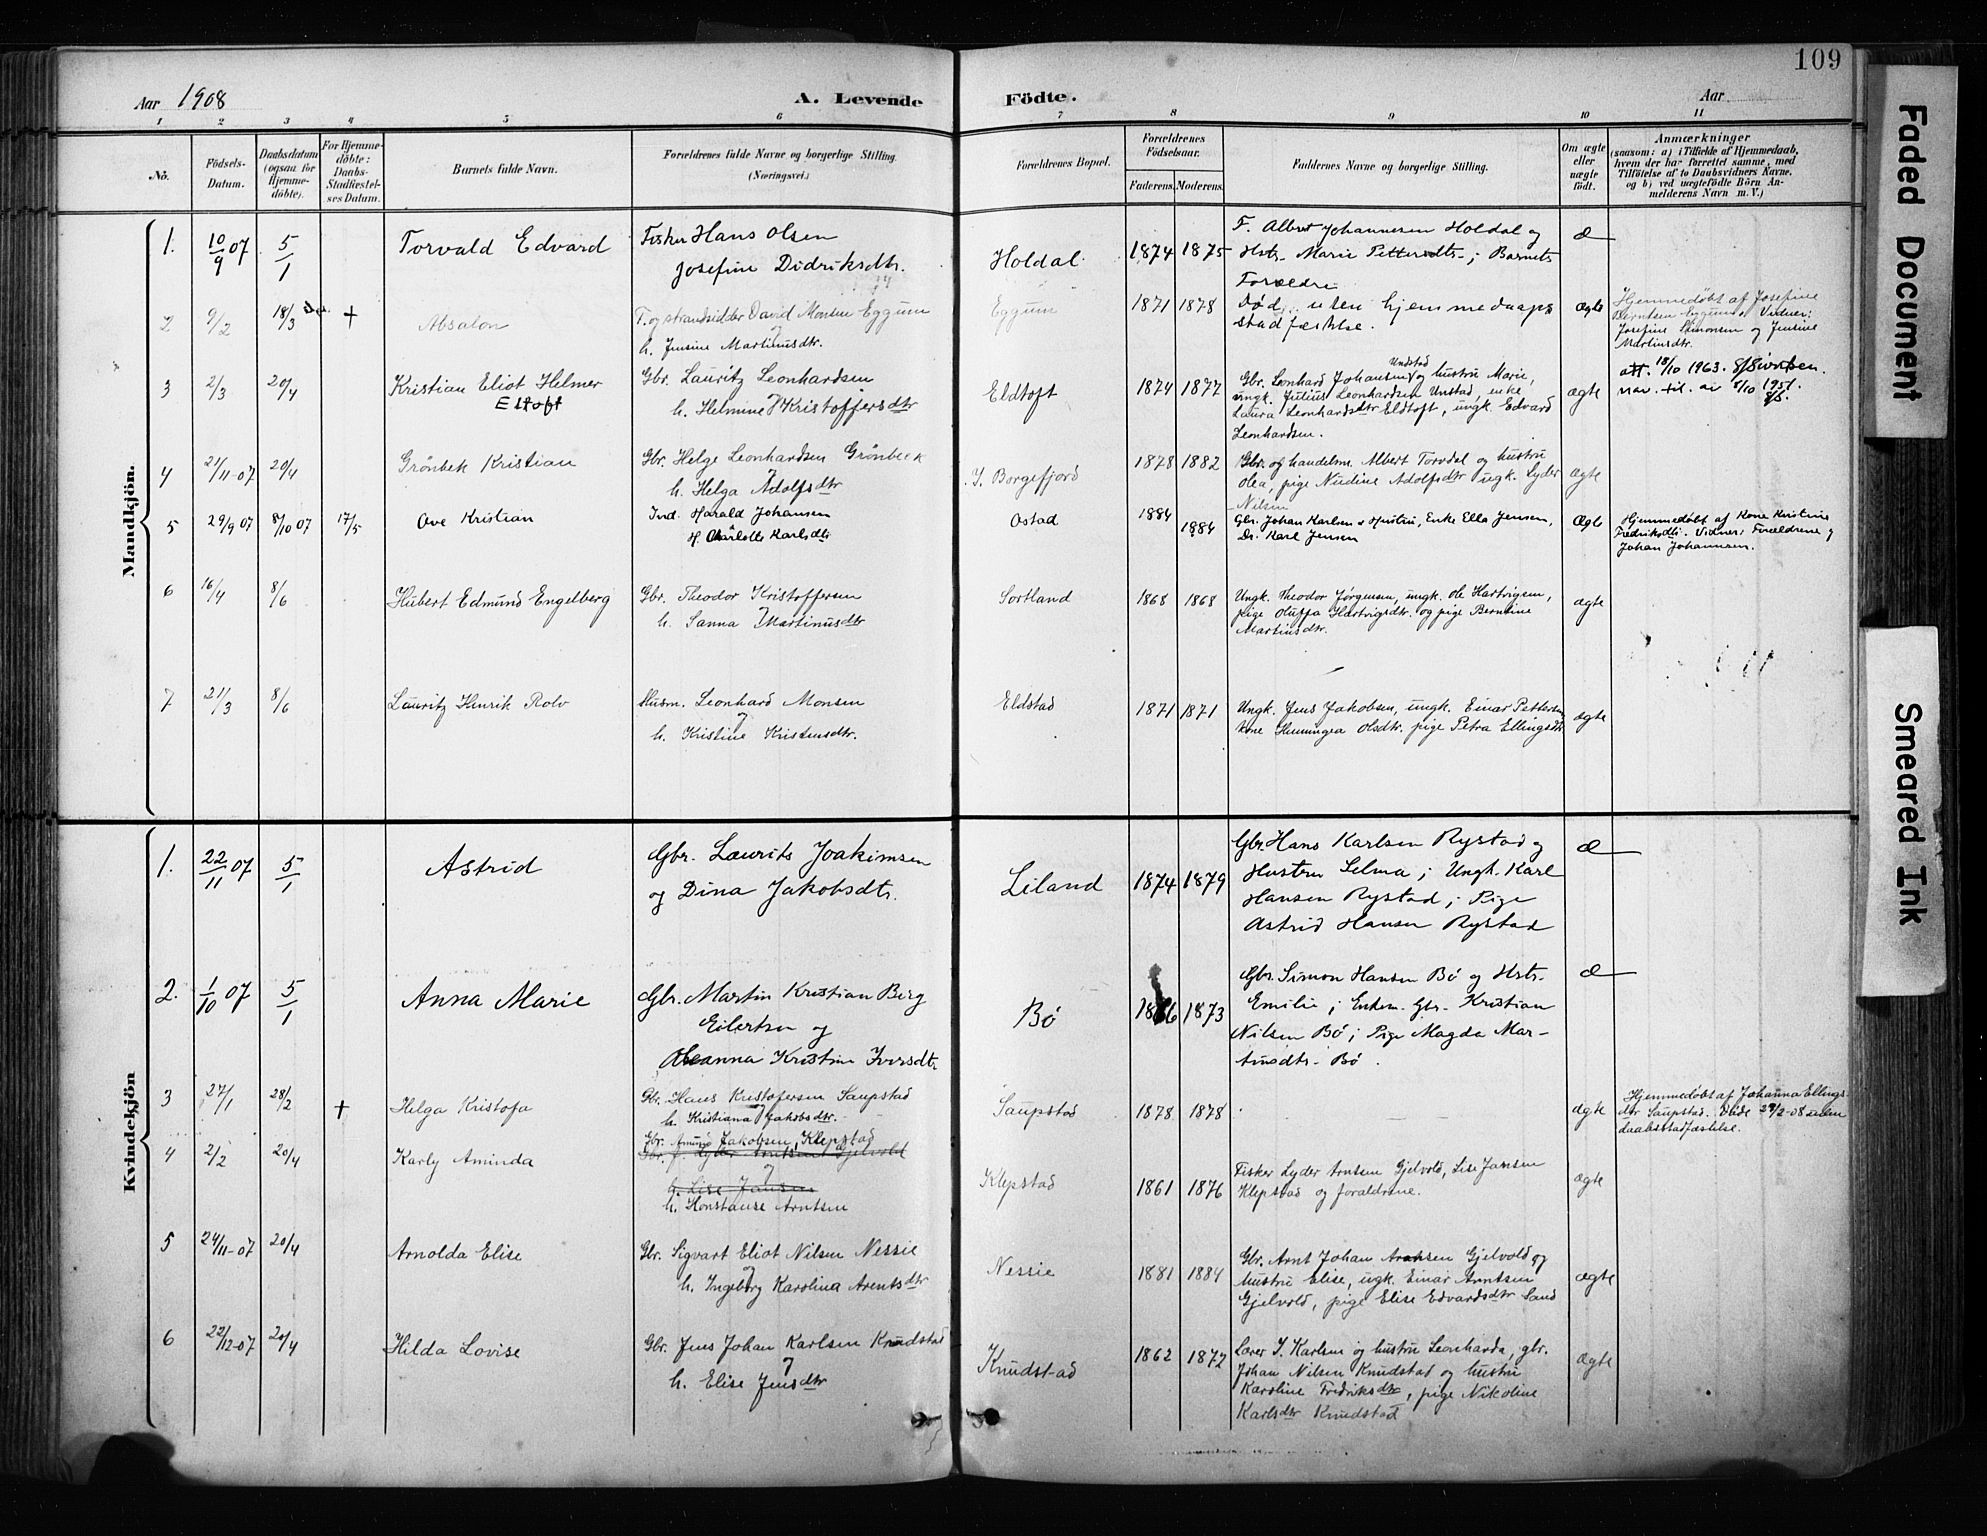 109
Aar 1908
A. Levende Födte.
Aar
1 2 3 4 5 6 7 8 9 10 11
No.
Födsels-Datum.
Daabsdatum (ogsaa for Hjemme-døbte).
For Hjemme-døbte: Daabs-Stadfæstel-ses Datum.
Barnets fulde Navn.
Forældrenes fulde Navne og borgerlige Stilling. (Næringsvei.)
Forældrenes Bopæl.
Forældrenes Födselsaar.
Faderens. Moderens.
Faddernes Navne og borgerlige Stilling.
Om ægte eller uægte født.
Anmærkninger
(saasom: a) i Tilfælde af Hjemmedaab, hvem der har forrettet samme, med Tilföielse af to Daabsvidners Navne, og b) ved uægtefödte Börn An-melderens Navn m. V.)
Mandkjön.
1. 10/9 07 5/1 Torvald Edvard
Fisker Hans Olsen
Josefine Didriksdtr.
Holdal. 1874 1875
F. Albert Johannesen Holdal og
Hstr. Marie Pettersdtr. ; Barnets
Forældre
æ
2 9/2 18/3 + Absalon
F. og strandsidder David Monsen Eggum
og
h. Jensine Martinusdtr.
Eggum 1871 1878
Død uten hjemmedaaps
stadfæstelse.
ægte
Hjemmedøbt af Josefine
Berntsen Eggum. Vidner:
Josefine Simonsen og Jensine
Martinsdtr.
3 2/3 20/4 Kristian Eliot Helmer
Eltoft
Gbr. Lauritz Leonhardsen
h. Helmine Kristoffersdtr
Eldtoft 1874 1877
Unstad
Gbr. Leonhard Johansen og hustru Marie,
ungk. Julius Leonhardsen Unstad, enke
Laura Leonhardsdtr Eldtoft, ungk. Edvard
Leonhardsen.
ægte
att. 18/10 1963.
nav. til. av 8/10 1951.
4 21/11-07 20/4 Grönbek Kristian
Gbr. Helge Leonhardsen Grönbeck
og
h. Helga Adolfsdtr
I. Borgefjord 1878 1882
Gbr. og handelsm. Albert Torvdal og hustru
Olea, pige Nudine Adolfsdtr ungk. Lyder
Nilsen
ægte
5 29/9 07 8/10 07 17/5 Ove Kristian
Ind. Harald Johansen
H. Charlotte Karlsdtr
Ostad 1884 1884
Gbr. Johan Karlsen o Hustru, Enke Ella Jensen,
Dr. Karl Jensen
Ægte
Hjemmedøbt af Kone Kristine
Fredriksdtr. Vidner: Forældrene og
Johan Johannsen.
6 16/4 8/6 Hubert Edmund Engelberg
Gbr. Theodor Kristoffersen
og
h. Sanna Martinusdtr
Sortland 1868 1868
Ungk. Theodor Jørgensen, ungk. Ole Hartvigsen,
pige Oluffa Hartvigsdtr. og pige Berntine
Martinsdtr.
ægte
7 21/3 8/6 Lauritz Henrik Rolv
Husm. Leonhard Monsen
og
h. Kristine Kristensdtr.
Eldstad 1871 1871
Ungk. Jens Jakobsen, ungk. Einar Pettersen
kone Henningea Olsdtr. pige Petra Ellingsdtr
ægte
Kvindekjön
1. 22/11 07 5/1 Astrid
Gbr. Laurits Joakimsen
og Dina Jakobsdtr.
Liland 1874 1879
Gbr. Hans Karlsen Rystad og
Hustru Selma ; Ungk. Karl
Hansen Rystad ; Pige
Astrid Hansen Rystad
æ
2. 1/10 07 5/1 Anna Marie
Gbr. Martin Kristian Berg
Eilertsen og
Oleanna Kristine Iversdtr
Bö 1866 1873
Gbr. Simon Hansen Bö og Hstr.
Emilie ; Enkem. Gbr. Kristian
Nilsen Bö ; Pige Magda Mar-
tinsdtr. Bö .
æ
3 27/1 28/2 + Helga Kristofa
Gbr. Hans Kristofersen Saupstad
h. Kristiana Jakobsdtr.
Saupstad 1878 1878
ægte
Hjemmedøbt af Johanna Ellings-
dtr Saupstad. Döde 29/2-08 uden
daabsstadfæstelse.
4 2/2 20/4 Karly Aminda
Gbr. Amund Jakobsen, Klepstad
Gbr. f. Lyder Arntsen Gjelvold
og
h. Lise Jansen
h. Konstanse Arntsen
Klepstad 1861 1876
Fisker Lyder Arntsen Gjelvold, Lise Jansen
Klepstad og forældrene.
ægte
5 24/11-07 20/4 Arnolda Elise
Gbr. Sigvart Eliot Nilsen Nessie
og
h. Ingeborg Karolina Arentsdtr
Nessie 1881 1884
Gbr. Arnt Johan Gjelvold og
hustru Elise, ugk. Einar Arntsen
Gjelvold, pige Elise Edvardsdtr Sand
ægte
6 22/12-07 20/4 Hilda Lovise
Gbr. Jens Johan Karlsen Knudstad
og
h. Elise Jensdtr
Knudstad 1862 1872
Lærer I. Karlsen og hustru Leonharda, gbr.
Johan Nilsen Knudstad og hustru
Karoline Fredriksdtr, pige Nikoline
Karlsdtr Knudstad
ægte
Faded Document
Smeared Ink